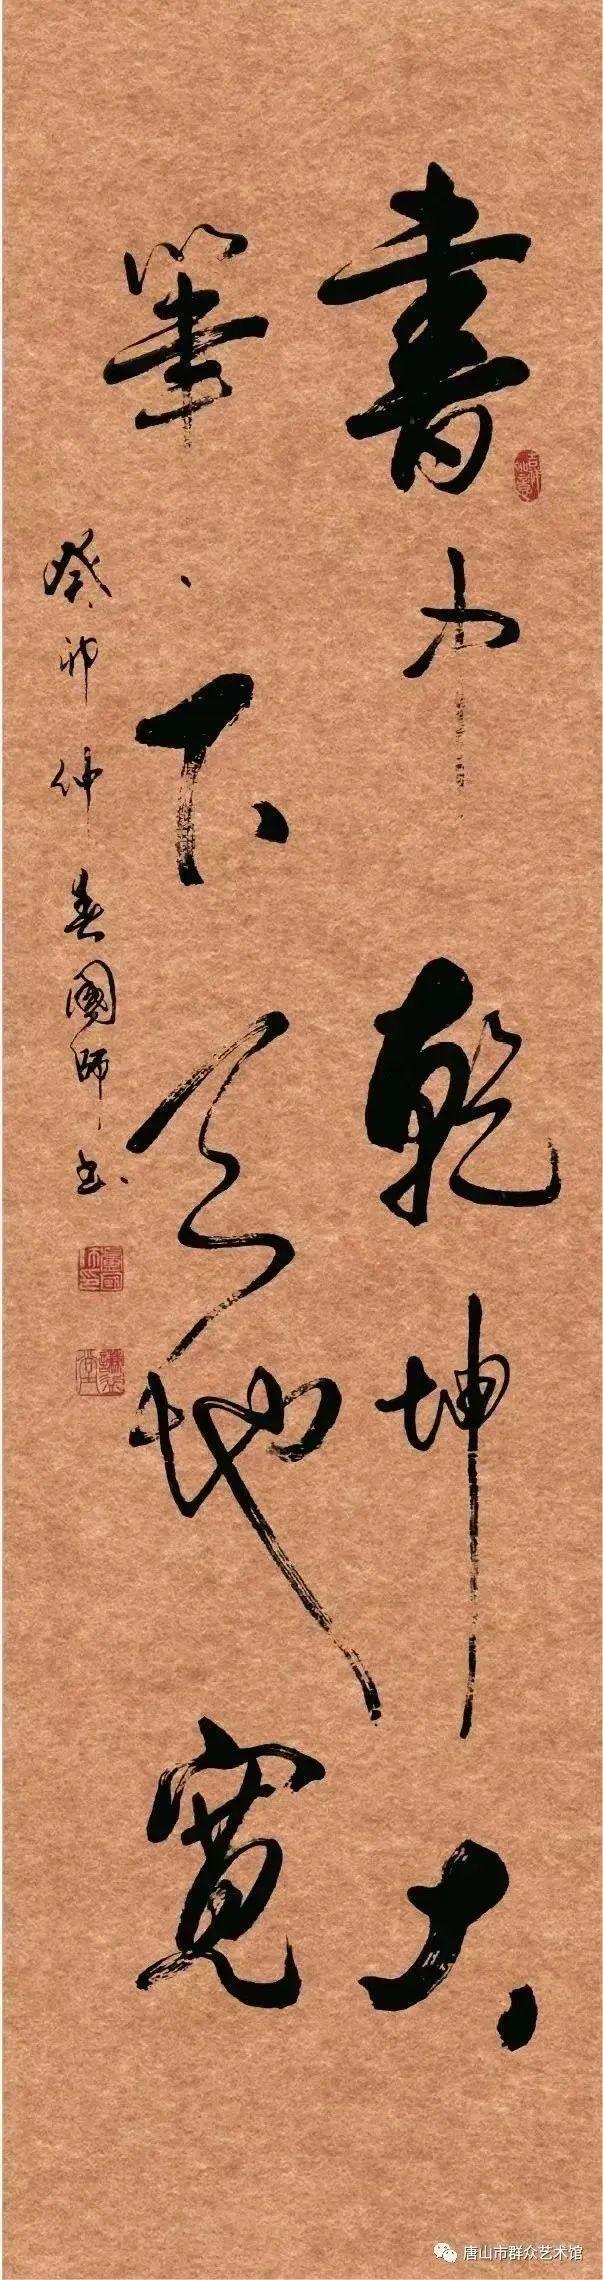 書中乾坤大
筆下天地寬
癸卯仲春國師书
唐山市群众艺术馆